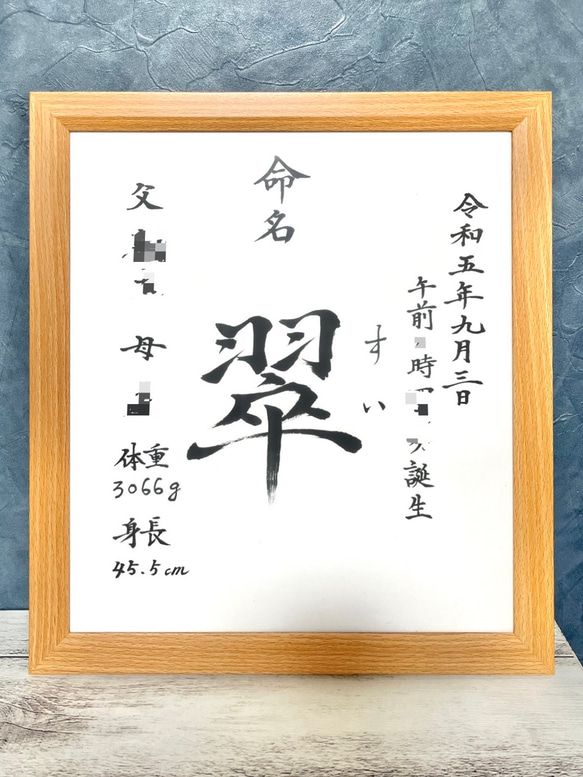 令和五年九月三日
午前 時
誕生
命名
翠
すい
父
母
体重
3066g
身長
45.5cm